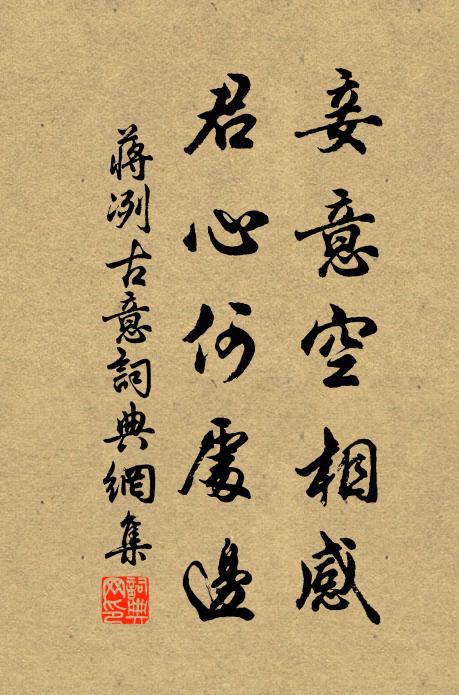 妾意空相感
君心何處邊
蔣冽古意詞典網集
詞典网印